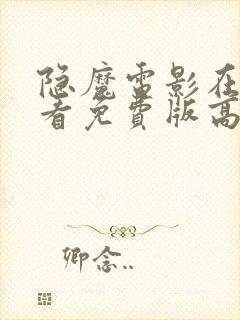 隐魔雷影在
看免费版高
卿念..